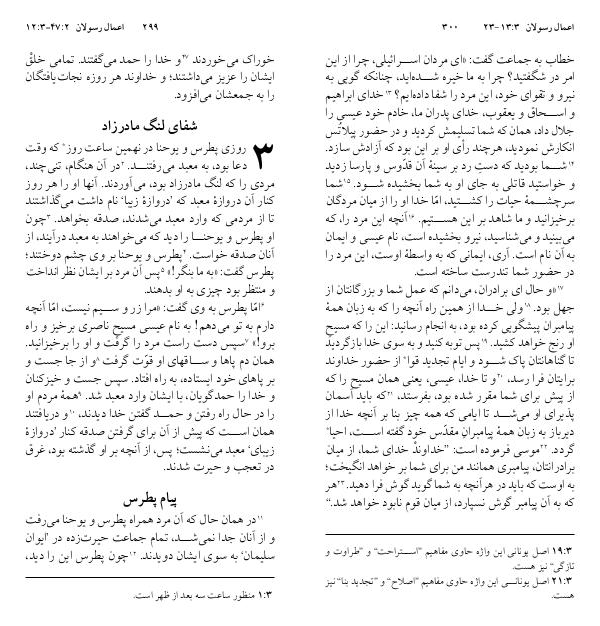 ۲۹۹ اعمال رسولان ۴۷:۲-۱۲:۳
خوراک می‌خوردند ۴۷و خدا را حمد می‌گفتند. تمامی خلقْ
ایشان را عزیز می‌داشتند؛ و خداوند هر روزه نجات‌یافتگان
را به جمعشان می‌افزود.
شفای لنگ مادرزاد
۳ روزی پطرس و یوحنا در نهمین ساعت روز* که وقت
دعا بود، به معبد می‌رفتند. ۲در آن هنگام، تنی‌چند،
مردی را که لنگ مادرزاد بود، می‌آوردند. آنها او را هر روز
کنار آن دروازهٔ معبد که ’دروازهٔ زیبا‘ نام داشت می‌گذاشتند
تا از مردمی که وارد معبد می‌شدند، صدقه بخواهد. ۳چون
او پطرس و یوحنا را دید که می‌خواهند به معبد درآیند، از
آنان صدقه خواست. ۴پطرس و یوحنا بر وی چشم دوختند؛
پطرس گفت: «به ما بنگر!» ۵پس آن مرد بر ایشان نظر انداخت
و منتظر بود چیزی به او بدهند.
۶امّا پطرس به وی گفت: «مرا زر و سیم نیست، امّا آنچه
دارم به تو می‌دهم! به نام عیسی مسیحِ ناصری برخیز و راه
برو!» ۷سپس دست راست مرد را گرفت و او را برخیزانید.
همان دم پاها و ساقهای او قوّت گرفت ۸و از جا جست و
بر پاهای خود ایستاده، به راه افتاد. سپس جست و خیزکنان
و خدا را حمدگویان، با ایشان وارد معبد شد. ۹همهٔ مردم او
را در حال راه رفتن و حمد گفتن خدا دیدند، ۱۰و دریافتند
همان است که پیش از آن برای گرفتن صدقه کنار ’دروازهٔ
زیبای‘ معبد می‌نشست؛ پس، از آنچه بر او گذشته بود، غرق
در تعجب و حیرت شدند.
پیام پطرس
۱۱در همان حال که آن مرد همراه پطرس و یوحنا می‌رفت
و از آنان جدا نمی‌شد، تمام جماعت حیرت‌زده در ’ایوان
سلیمان‘ به سوی ایشان دویدند. ۱۲چون پطرس این را دید،
۱:۳ منظور ساعت سه بعد از ظهر است.
اعمال رسولان ۱۳:۳-۲۳ ۳۰۰
خطاب به جماعت گفت: «ای مردان اسرائیلی، چرا از این
امر در شگفتید؟ چرا به ما خیره شده‌اید، چنانکه گویی به
نیرو و تقوای خود، این مرد را شفا داده‌ایم؟ ۱۳خدای ابراهیم
و اسحاق و یعقوب، خدای پدران ما، خادم خود عیسی را
جلال داد، همان که شما تسلیمش کردید و در حضور پیلاتُس
انکارش نمودید، هرچند رأی او بر این بود که آزادش سازد.
۱۴شما بودید که دستِ رد بر سینهٔ آن قدّوس و پارسا زدید
و خواستید قاتلی به جای او به شما بخشیده شود. ۱۵شما
سرچشمهٔ حیات را کشتید، امّا خدا او را از میان مردگان
برخیزانید و ما شاهد بر این هستیم. ۱۶آنچه این مرد را، که
می‌بینید و می‌شناسید، نیرو بخشیده است، نام عیسی و ایمان
به آن نام است. آری، ایمانی که به واسطهٔ اوست، این مرد را
در حضور شما تندرست ساخته است.
۱۷«و حال ای برادران، می‌دانم که عمل شما و بزرگانتان از
جهل بود. ۱۸ولی خدا از همین راه آنچه را که به زبان همهٔ
پیامبران پیشگویی کرده بود، به انجام رسانید: این را که مسیحِ
او رنج خواهد کشید. ۱۹پس توبه کنید و به سوی خدا بازگردید
تا گناهانتان پاک شود و ایام تجدید قوا* از حضور خداوند
برایتان فرا رسد، ۲۰و تا خدا، عیسی، یعنی همان مسیح را که
از پیش برای شما مقرر شده بود، بفرستد، ۲۱که باید آسمان
پذیرای او می‌شد تا ایامی که همه چیز بنا بر آنچه خدا از
دیرباز به زبان همهٔ پیامبرانِ مقدّس خود گفته است، احیا*
گردد. ۲۲موسی فرموده است: ”خداوندْ خدای شما، از میان
برادرانتان، پیامبری همانند من برای شما بر خواهد انگیخت؛
به اوست که باید در هرآنچه به شما گوید گوش فرا دهید. ۲۳هر
که به آن پیامبر گوش نسپارد، از میان قوم نابود خواهد شد.“
۱۹:۳ اصل یونانی این واژه حاوی مفاهیم ”استراحت“ و ”طراوت و
تازگی“ نیز هست.
۲۱:۳ اصل یونانی این واژه حاوی مفاهیم ”اصلاح“ و ”تجدید بنا“ نیز
هست.